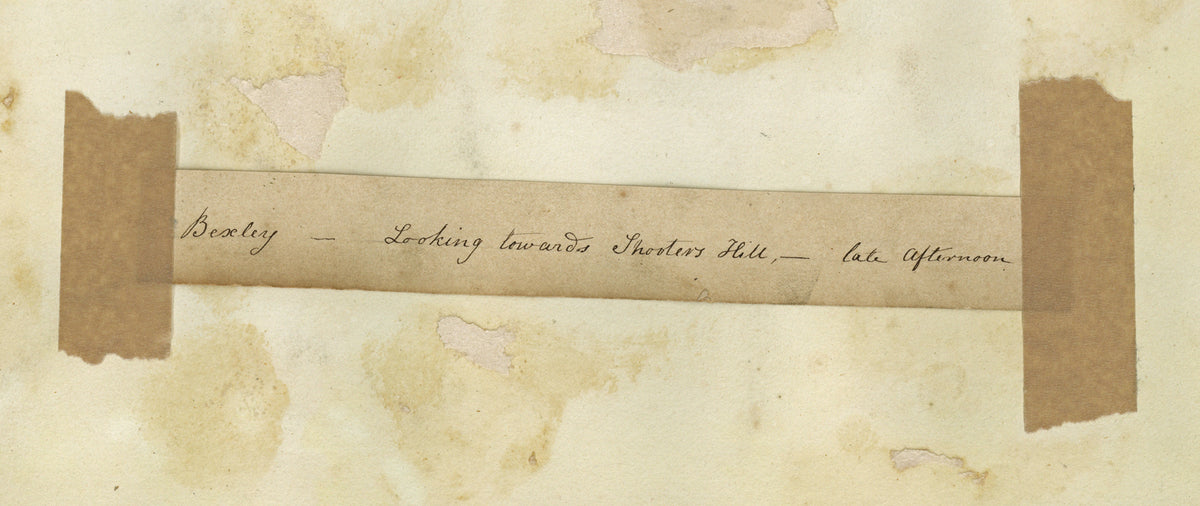 Bexley — Looking towards Shooters Hill,— late Afternoon